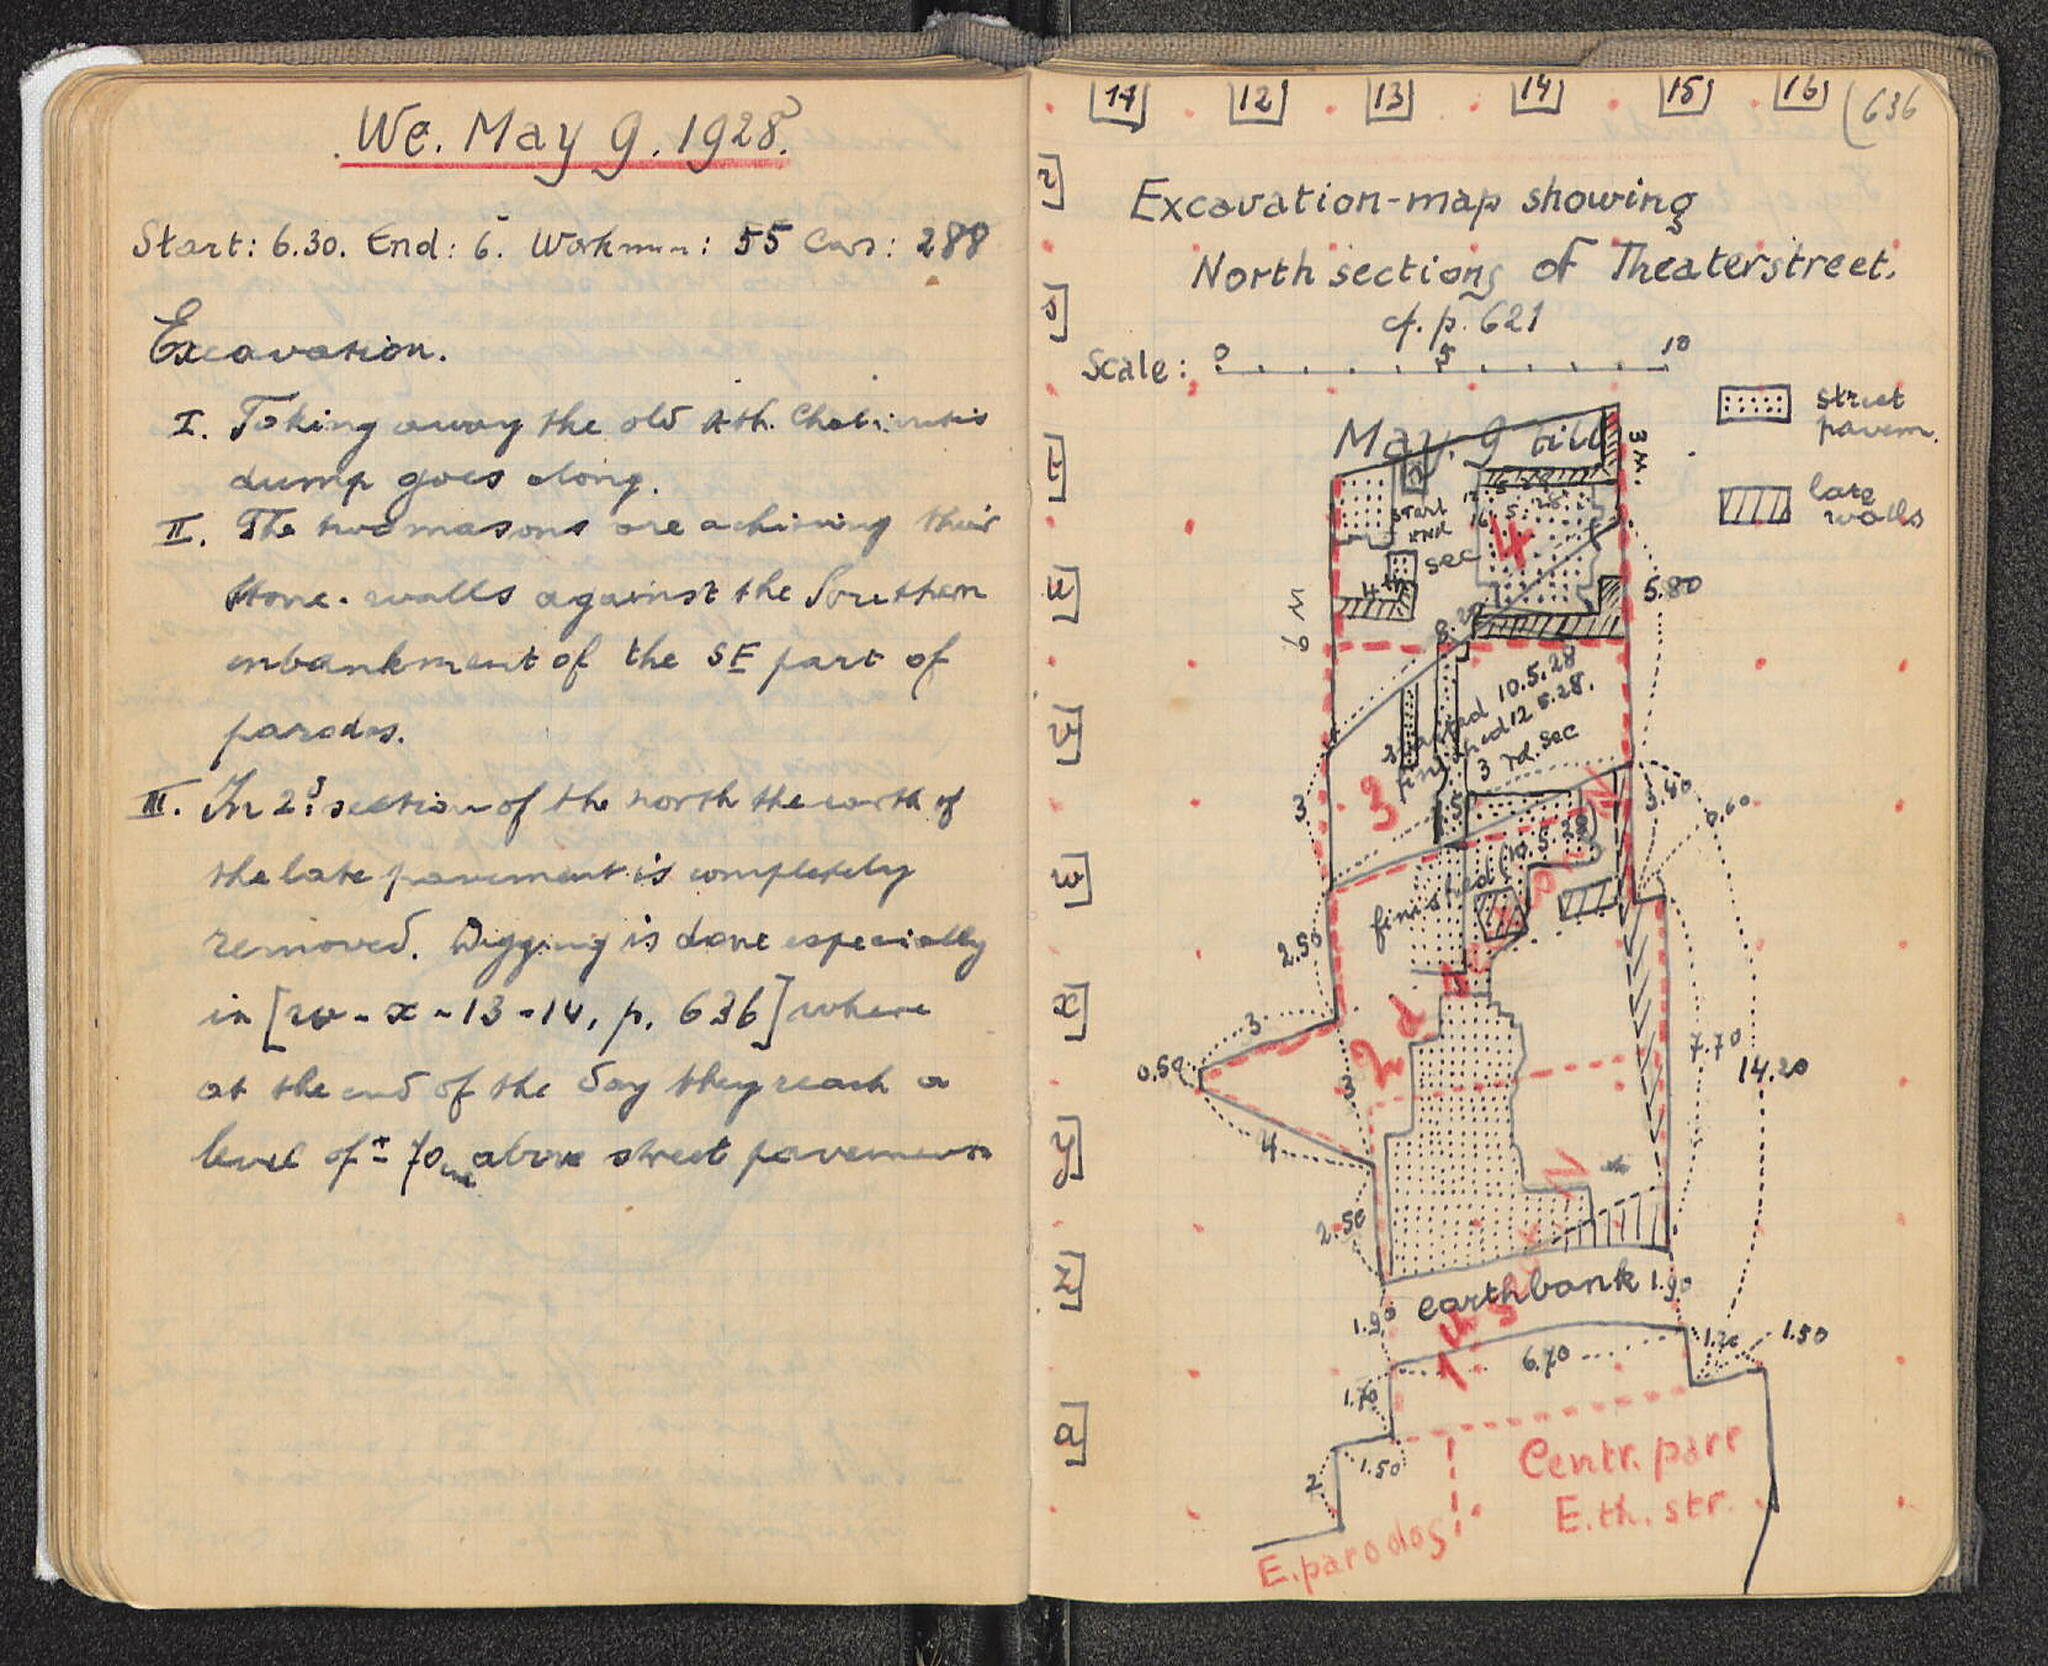 We. May 9. 1928.
Start: 6.30. End: 6. Workmen: 55 Cars: 288
Excavation.
I. Taking away the old Ath.
dump goes along.
II. The two masons are achieving their
stone-walls against the Southern
enbankment of the SE part of
parodos.
III. In 2d section of the north the earth of
the late pavement is completely
removed. Digging is done especially
in [w - x - 13 - 14, p. 636] where
at the end of the day they reach a
level of ± 70 cm above street pavement
11 12 13 14 15 16 (636
r
s
t
u
v
w
x
y
z
a
Excavation-map showing
North sections of Theaterstreet.
cf. p. 621
Scale: 0 5 10
street
pavem.
late
walls
May. 9 till
3 M.
start
16.5.28
4
sec
4th
6 M
8.20
5.80
started 10.5.28
finished 12 5.28.
3rd. sec
3
3
3.40
0.60
finished (10.5.28)
2.50
3
0.50
2d
3
4
7.70
14.20
2.50
earthbank 1.90
1.90
6.70
1.50
1.70
1.50
2
Centr. part
E. th. str.
E. parodos